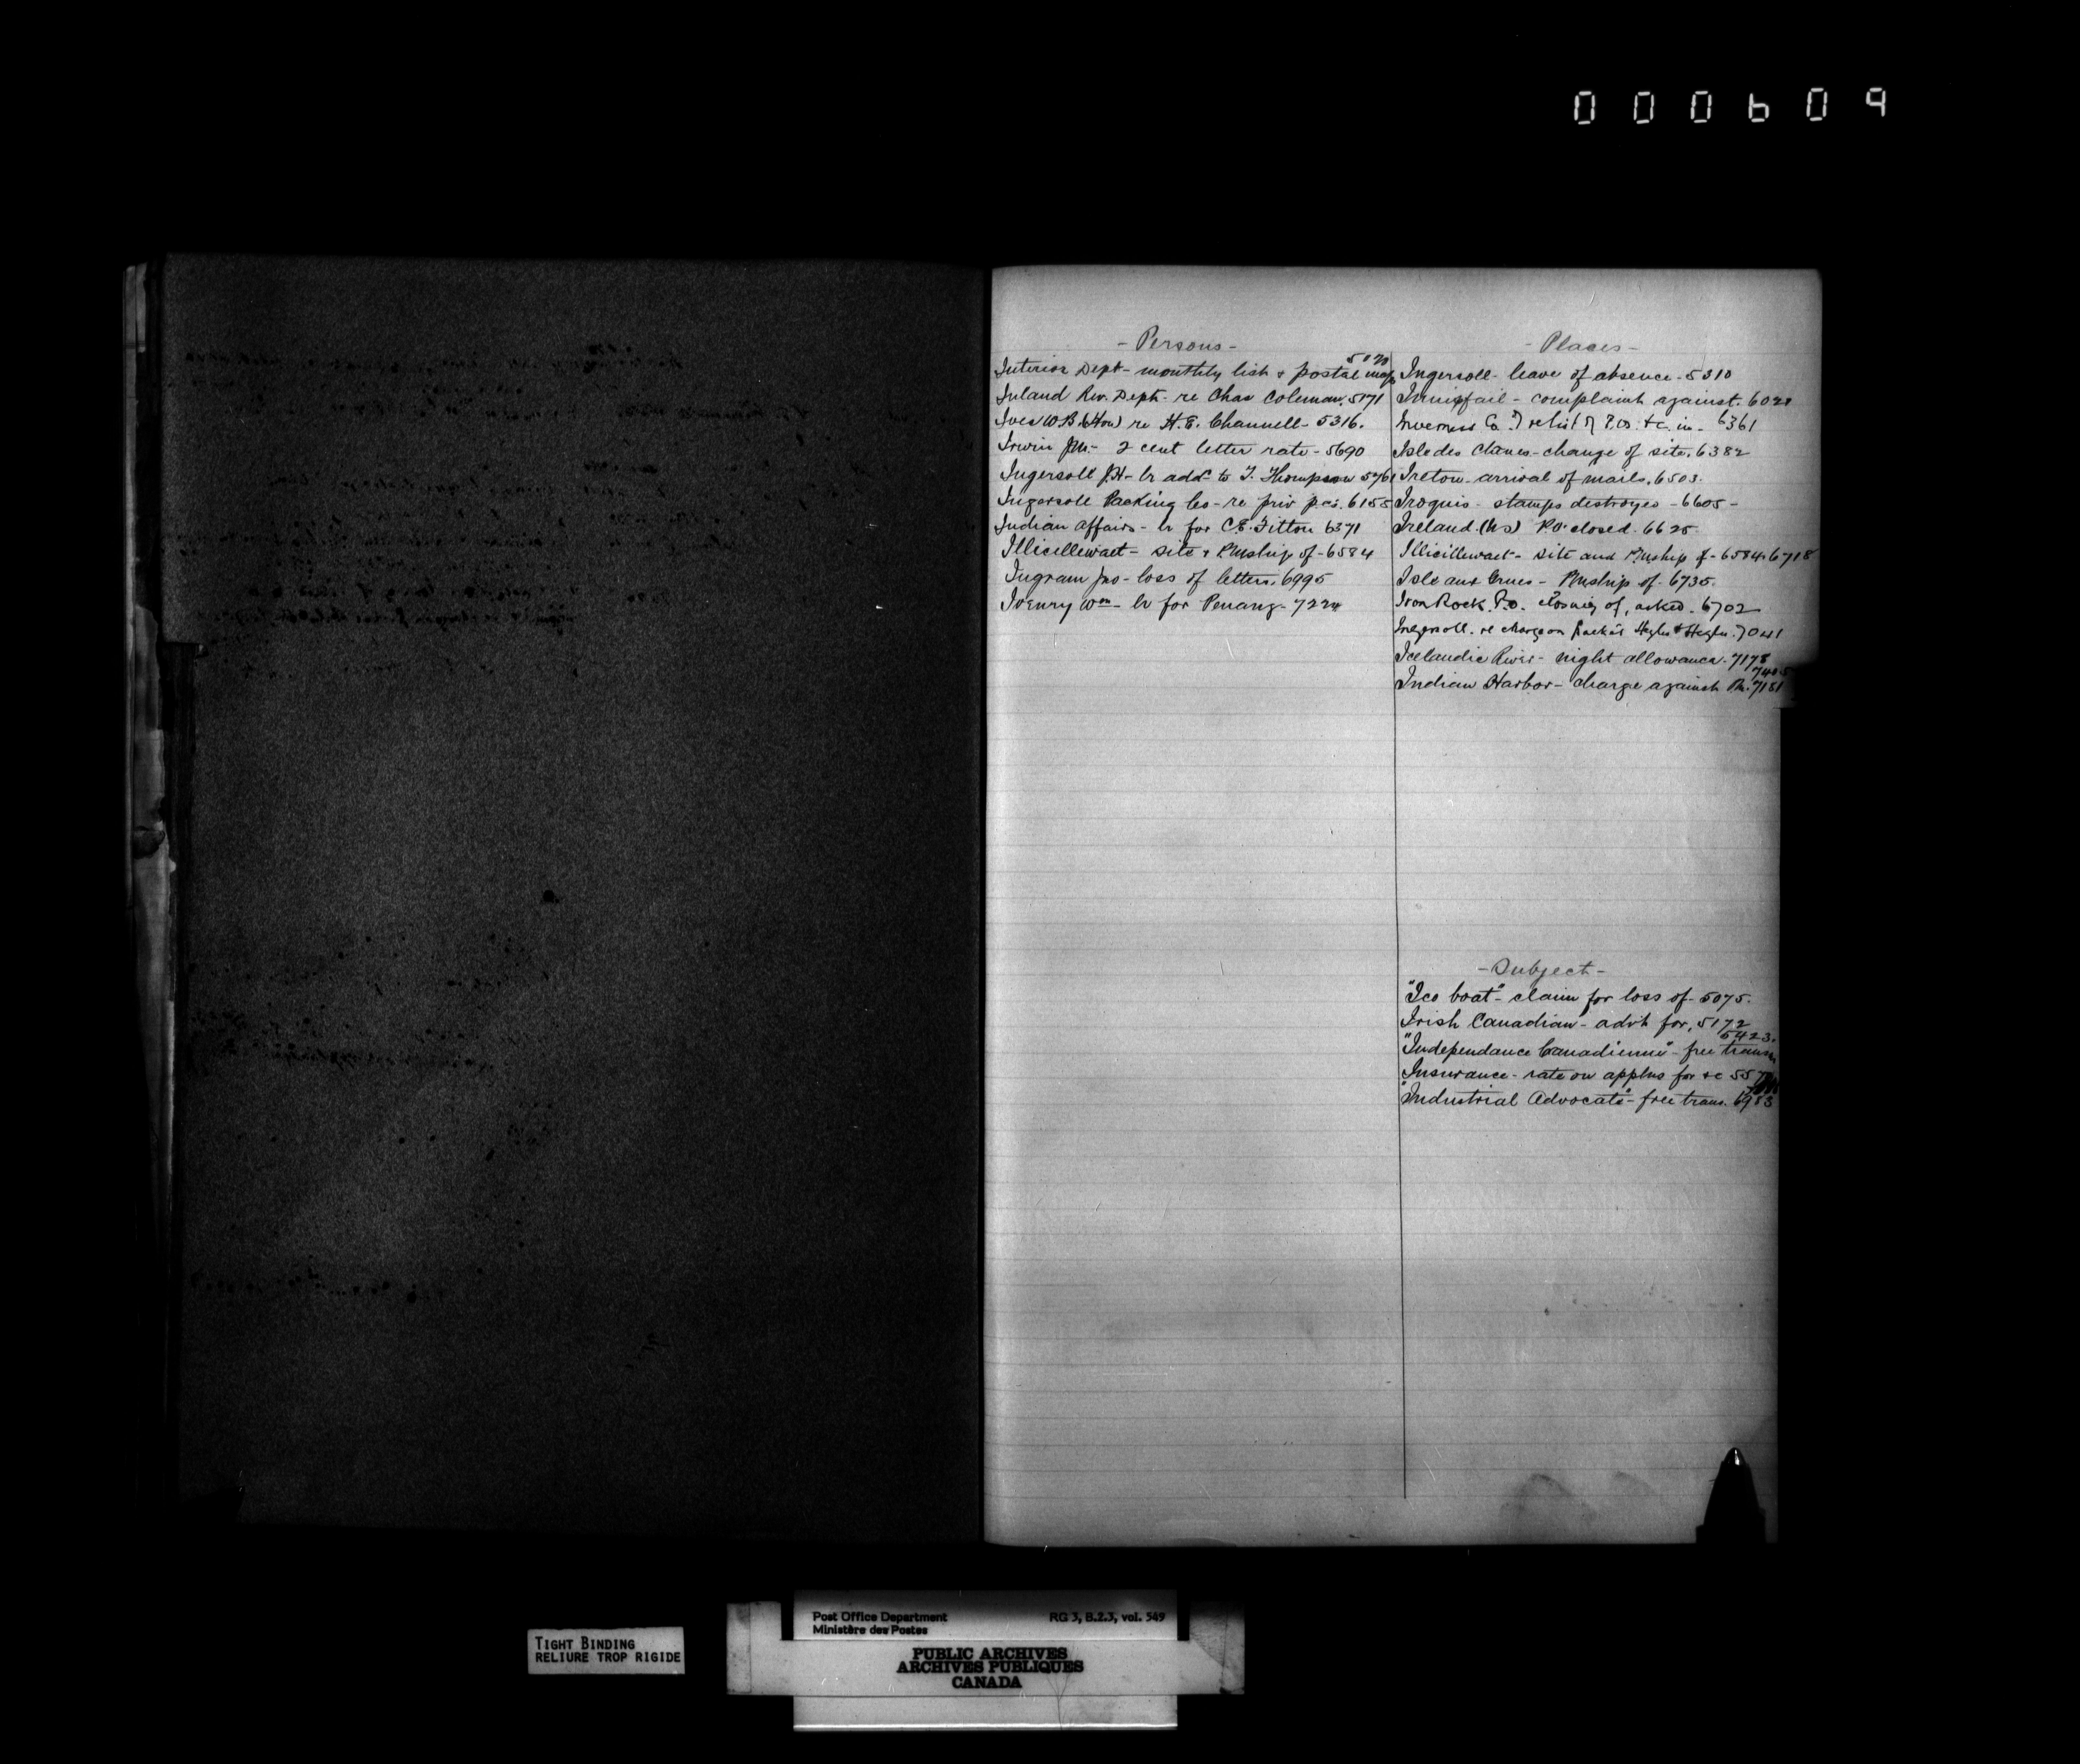 000609
- Persons -
Interior Dept - monthly list & postal map
Inland Rev. Dept - re Chas Coleman. 5171
Ives W.B. (Hon) re H.E. Channell - 5316.
Irwin Jno. - 2 cent letter rate - 5690
Ingersoll J.H - lr add to T. Thompson 5761
Ingersoll Packing Co - re priv p.cs. 6155
Indian Affairs - lr for C.E. Fitton 6371
Illicillewaet - site & PMship of - 6584
Ingram Jno - loss of letters. 6995
Ivenry Wm - lr for Penang - 7224
- Places -
Ingersoll - leave of absence - 5310
Innisfail - complaint against. 6021
Inverness Co. list of P.Os. &c. in - 6361
Isle des Chenes - change of site. 6382
Ireton - arrival of mails. 6503.
Iroquis - stamps destroyed - 6605 -
Ireland (NS) P.O. closed. 6625.
Illicillewaet - site and PMship of - 6584. 6718
Isle aux Grues - PMship of - 6735.
Iron Rock. P.O. closing of, asked. 6702
Ingersoll. re charge on packets 7041
Icelandic River - night allowance. 7178
7405
Indian Harbor - charge against PM. 7151
- Subject -
"Ice boat" - claim for loss of - 5075.
Irish Canadian - advt for, 5172
5423.
"Independance Canadienne" - free transn
Insurance - rate on applns for &c
"Industrial Advocate" - free trans. 6983
TIGHT BINDING
RELIURE TROP RIGIDE
Post Office Department RG 3, B.2.3, vol. 549
Ministère des Postes
PUBLIC ARCHIVES
ARCHIVES PUBLIQUES
CANADA